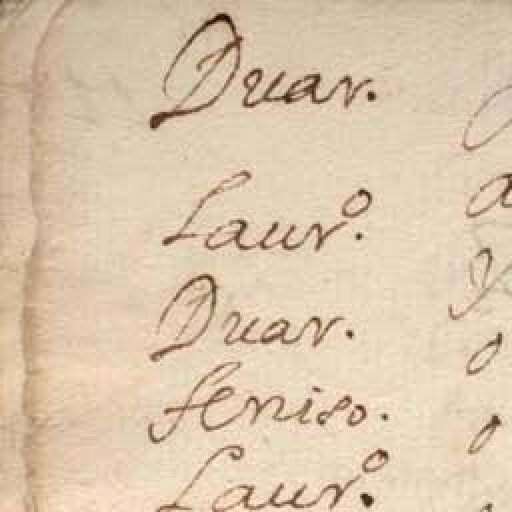 Duar.
Laur.º
Duar.
feniso.
Laur.º